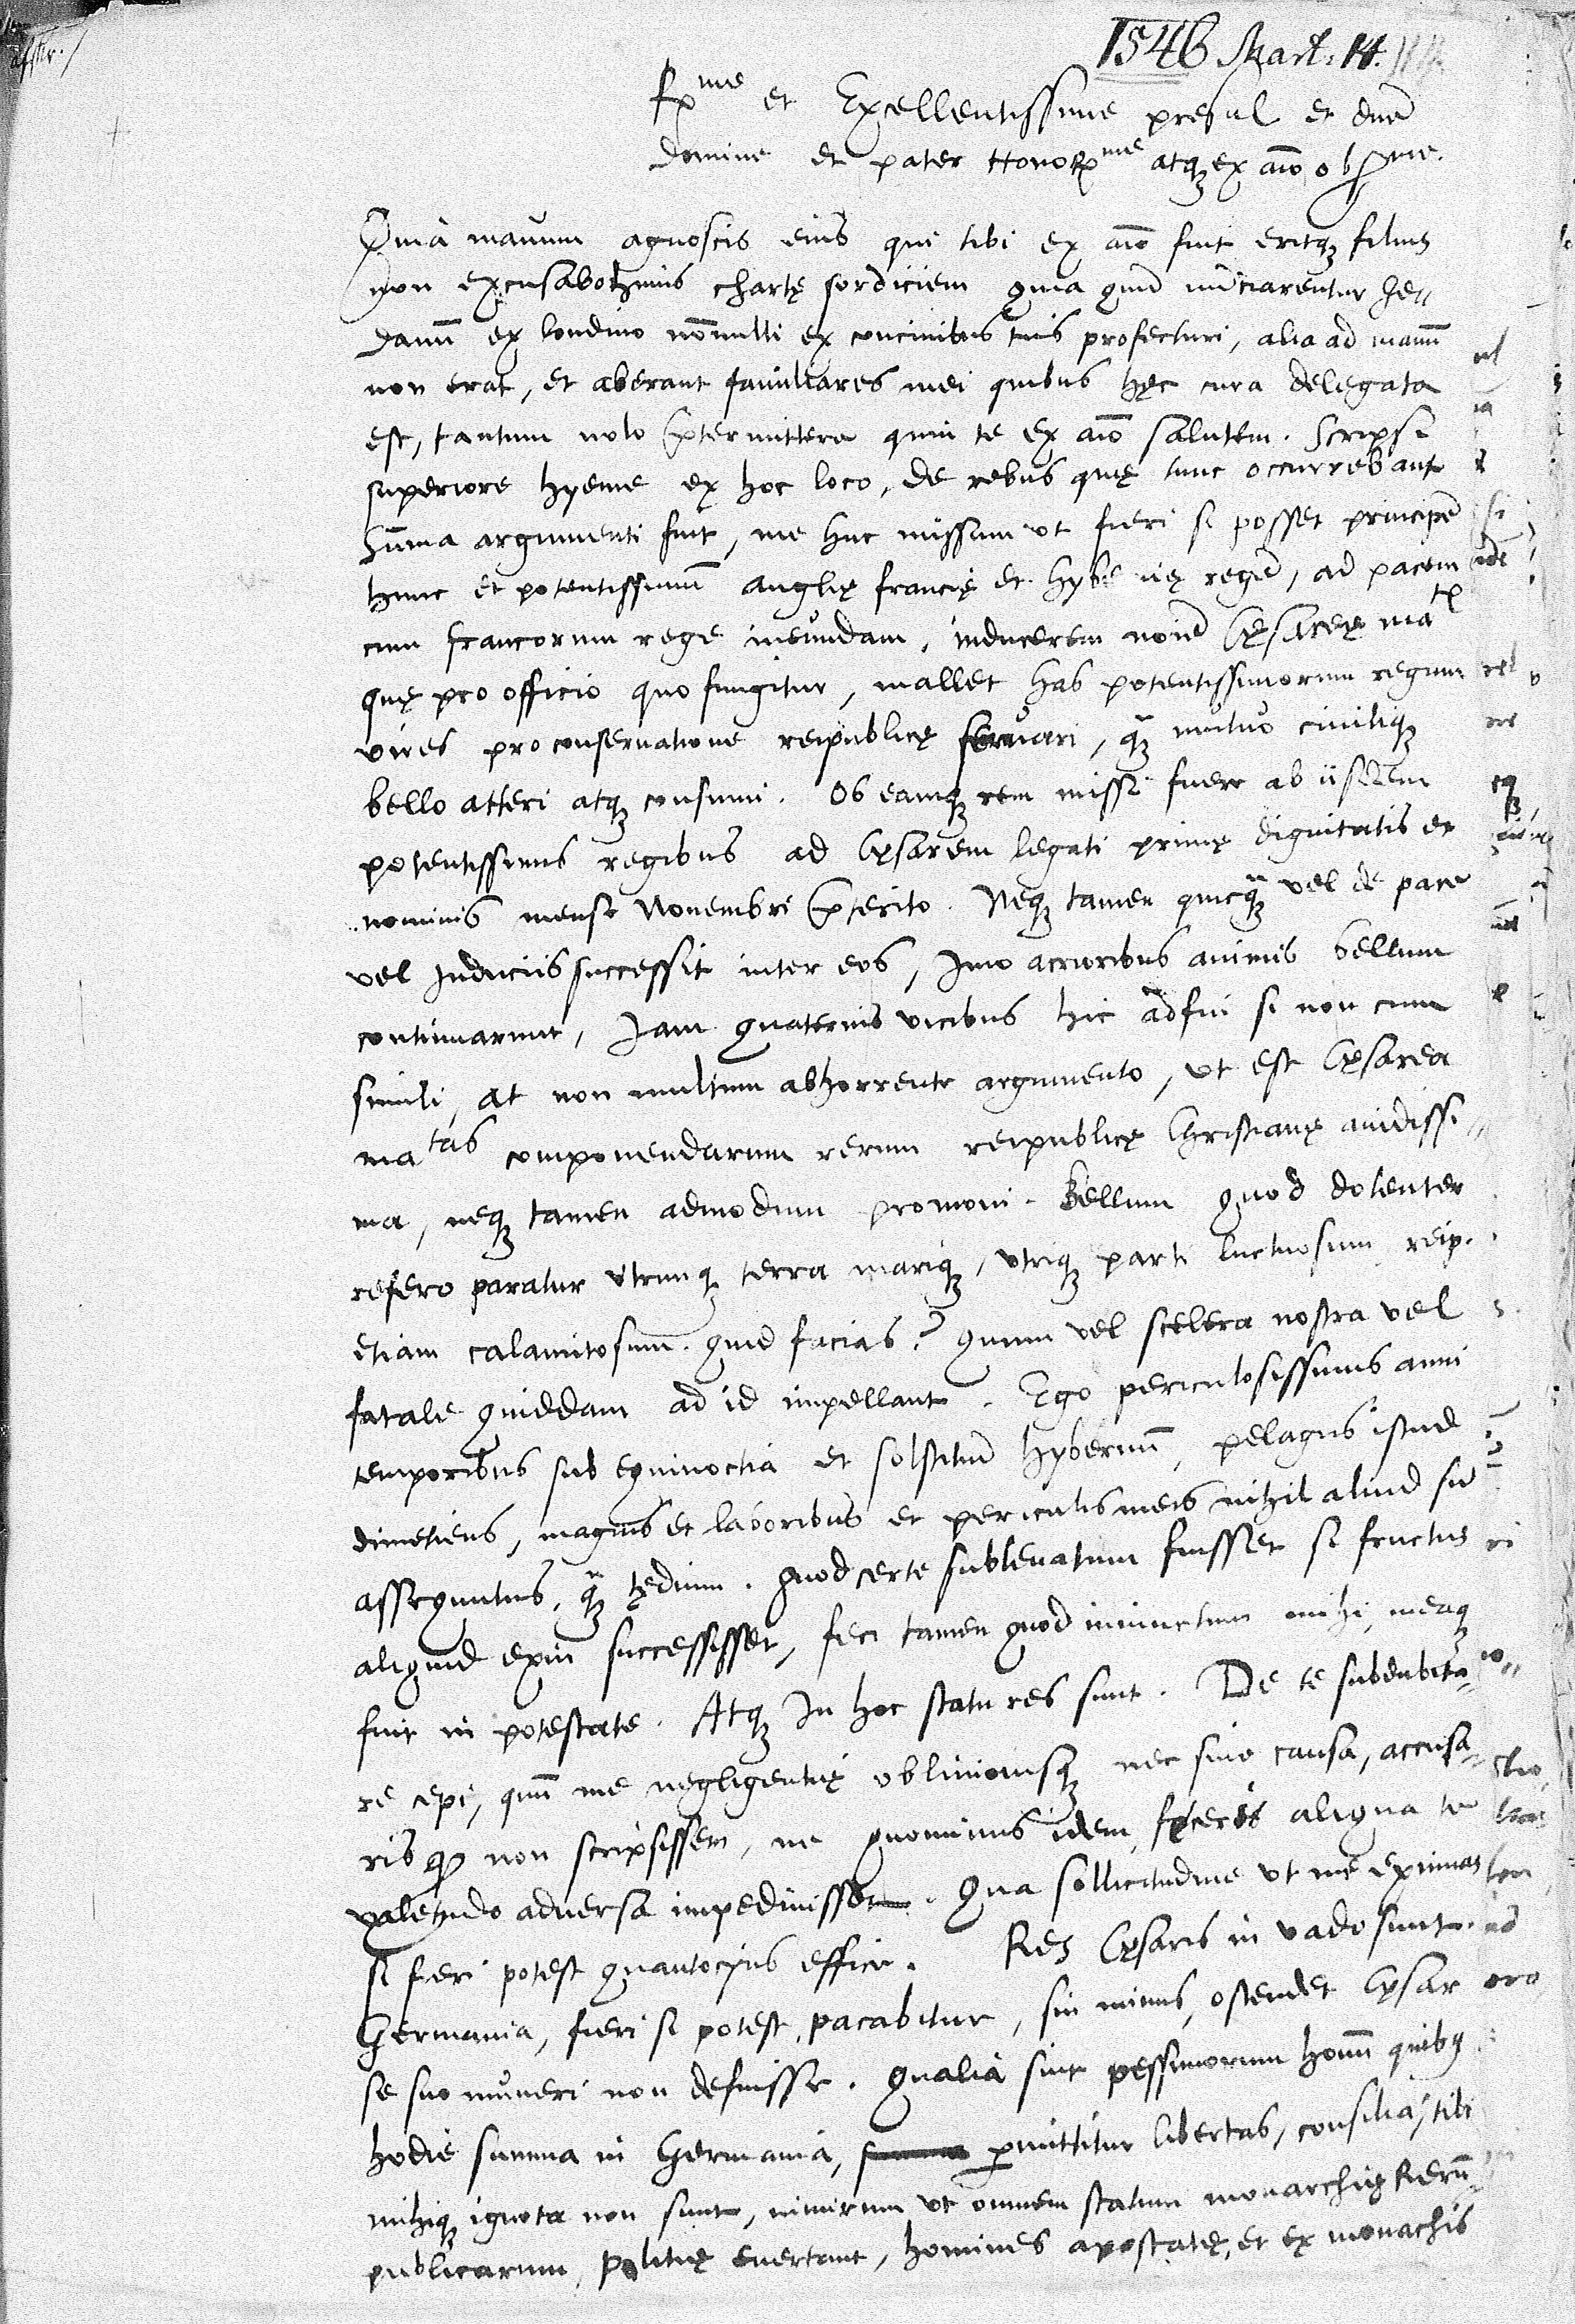 1546 Mart. 14.
Rme et Excellentissime presul et dne
Domine et pater Honorme atqz ex aio obsme.
Quia manum agnoscis eius qui tibi ex aio fuit eritqz filius
non excusabo huius chartę sordiciem quia quum nunciarentur Ge„
danum ex londino nonnulli ex concivibus tuis profecturi, alia ad manum
non erat, et aberant familiares mei quibus hęc cura delegata
est, tantum nolo prtermittere quin te ex aio salutem. Scripsi
superiore hyeme ex hoc loco, de rebus quę tunc occurrebant
Suma argumenti fuit, me huc missum ut fieri si posset principem
hunc et potentissimum Anglię francię et Hybernię regem, ad pacem
cum francorum rege ineundam, inducerem noie Cęsareę matis
quę pro officio quo fungitur, mallet has potentissimorum regum
vires pro conservatione reipublicę servari, qz mutuo civiliqz
bello atteri atqz consumi. Ob eamqz rem missi fuere ab iisdem
potentissimis regibus ad Cęsarem legati primę dignitatis et
nominis mense Novembri prterito. Neqz tamen quicqz vel de pace
vel Induciis successit inter eos, Imo acrioribus animis bellum
continuarunt, Iam quaternis vicibus hic adfui si non cum
simili, at non multum abhorrente argumento, ut est Cęsarea
matas componendarum rerum reipublicę Christianę avidissi„
ma, neqz tamen admodum promovi. Bellum quod dolenter
refero paratur utrinqz terra mariqz, utriqz parti luctuosum reip.
etiam calamitosum. quid facias? quum vel scelera nostra vel
fatale quiddam ad id impellant. Ego periculosissimis anni
temporibus sub equinoctia et solstitium hybernum, pelagus istud
dimetiens, magnis et laboribus et periculis meis nihil aliud sum
assequutus, qz tędium. quod certe sublevatum fuisset si fructus
aliquid exin successisset, feci tamen quod iniunctum mihi, meaqz
fuit in potestate. Atqz In hoc statu res sunt. De te subdubita„
re cepi, quum me negligentię oblivionisqz nec sine causa, accusa„
ris qd non scripsissem, ne quominus idem feceris aliqua te
valetudo adversa impedivisset. Qua sollicitudine ut me eximas
si fieri potest quantocyus effice. Res Cęsaris in vado sunt.
Germania, fieri si potest, pacabitur, sin minus, ostendet Cęsar
se suo muneri non defuisse. Qualia sint pessimorum hominum quibus
hodie summa in Germania, permittitur libertas, consilia, tibi
mihiqz ignota non sunt, nimirum ut omnem statum monarchię Rerum
publicarum, politię evertant, homines apostatę, et ex monachis